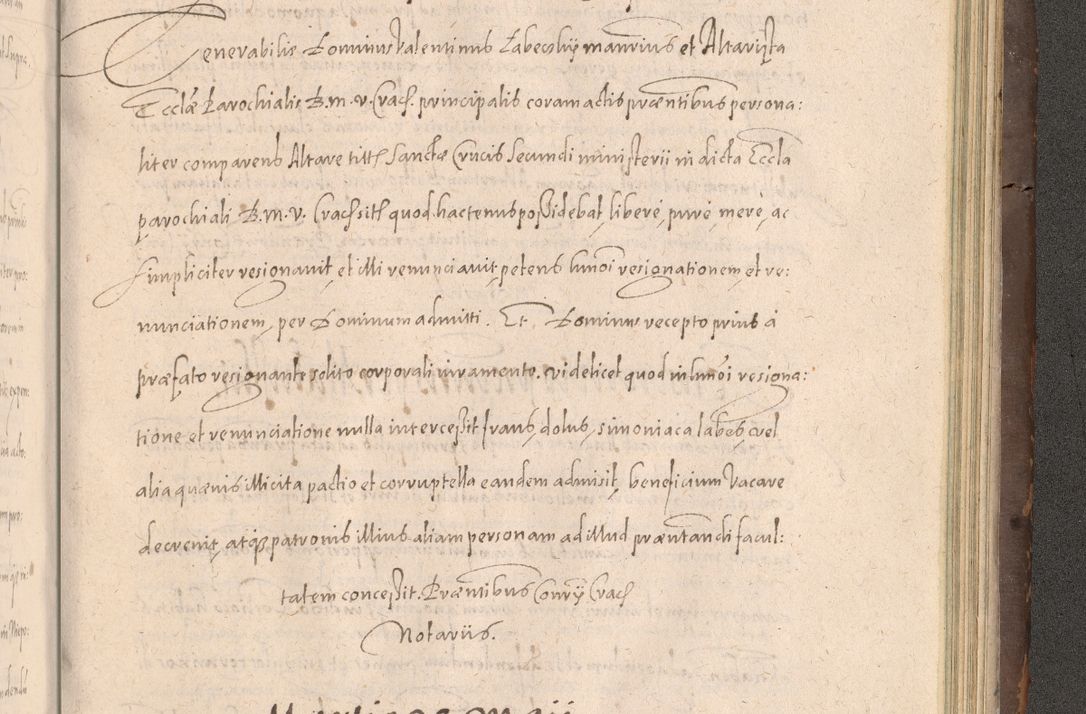 Venerabilis Dominus Valentinus Zabecolij mansrius et Altarista
Ecclæ Parochialis B. m. v. Crach. principalis coram actis præntibus persona:
liter comparens Altare titth Sanctæ Crucis Secundi ministerii in dicta Eccla
parochiali B. m. v. Crach sith quod hactenus possidebat libere, pure, mere, ac
simpliciter resignavit, et illi renunciavit, petens hmoi resignationem et re:
nunciationem per Dominum admitti. Et Dominus recepto prius à
præfato resignante solito corporali iuramento. videlicet quod in hmoi resigna:
tione et renunciatione nulla intercessit fraus, dolus, simoniaca labes, vel
alia quævis illicita pactio et corruptella eandem admisit, beneficium vacare
decrevit, atqz patronis illius aliam personam ad illud præntandi facul:
tatem concessit. Præntibus Crach
Notariis.